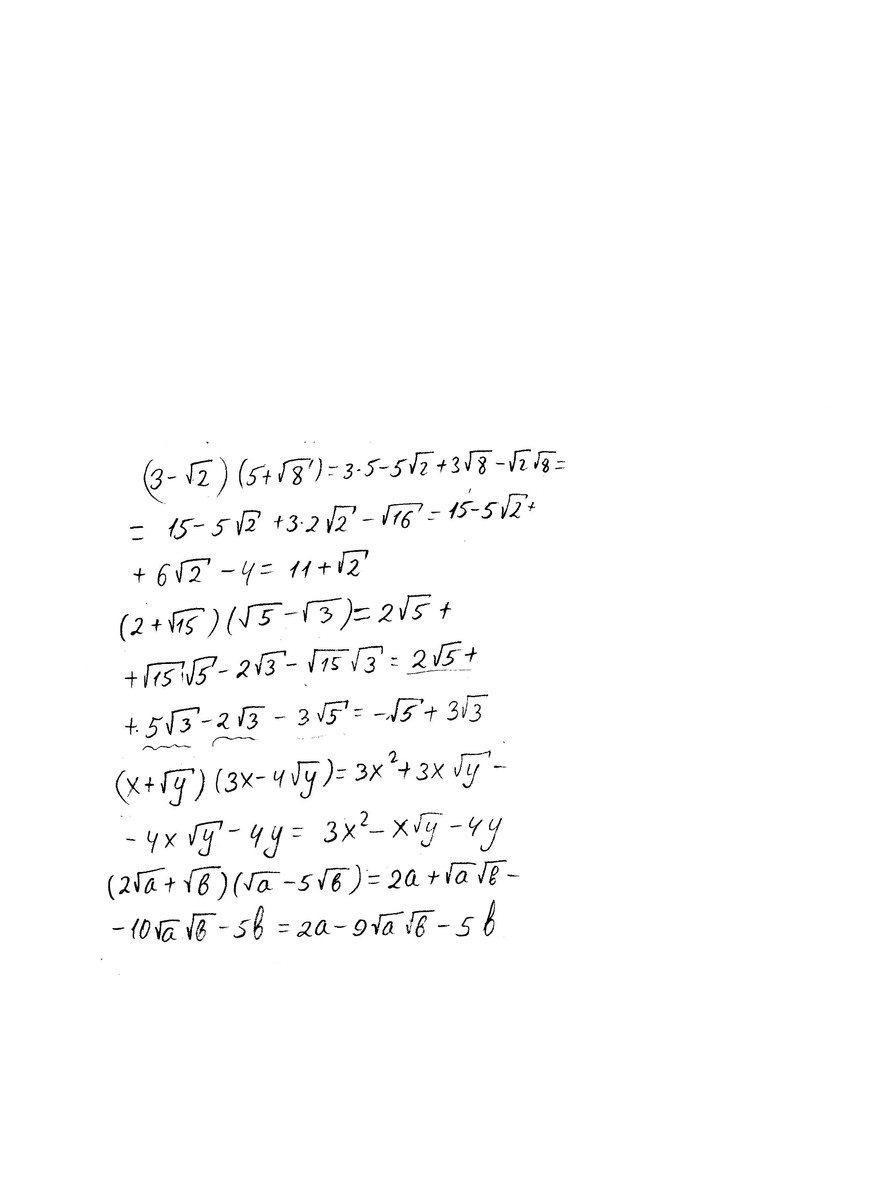 (3-√2)(5+√8)=3·5-5√2+3√8-√2√8=
= 15-5√2+3·2√2-√16=15-5√2+
+6√2-4=11+√2
(2+√15)(√5-√3)=2√5+
+√15√5-2√3-√15√3=2√5+
+5√3-2√3-3√5=-√5+3√3
(x+√y)(3x-4√y)=3x²+3x√y-
-4x√y-4y=3x²-x√y-4y
(2√a+√в)(√a-5√в)=2a+√a√в-
-10√a√в-5в=2a-9√a√в-5в